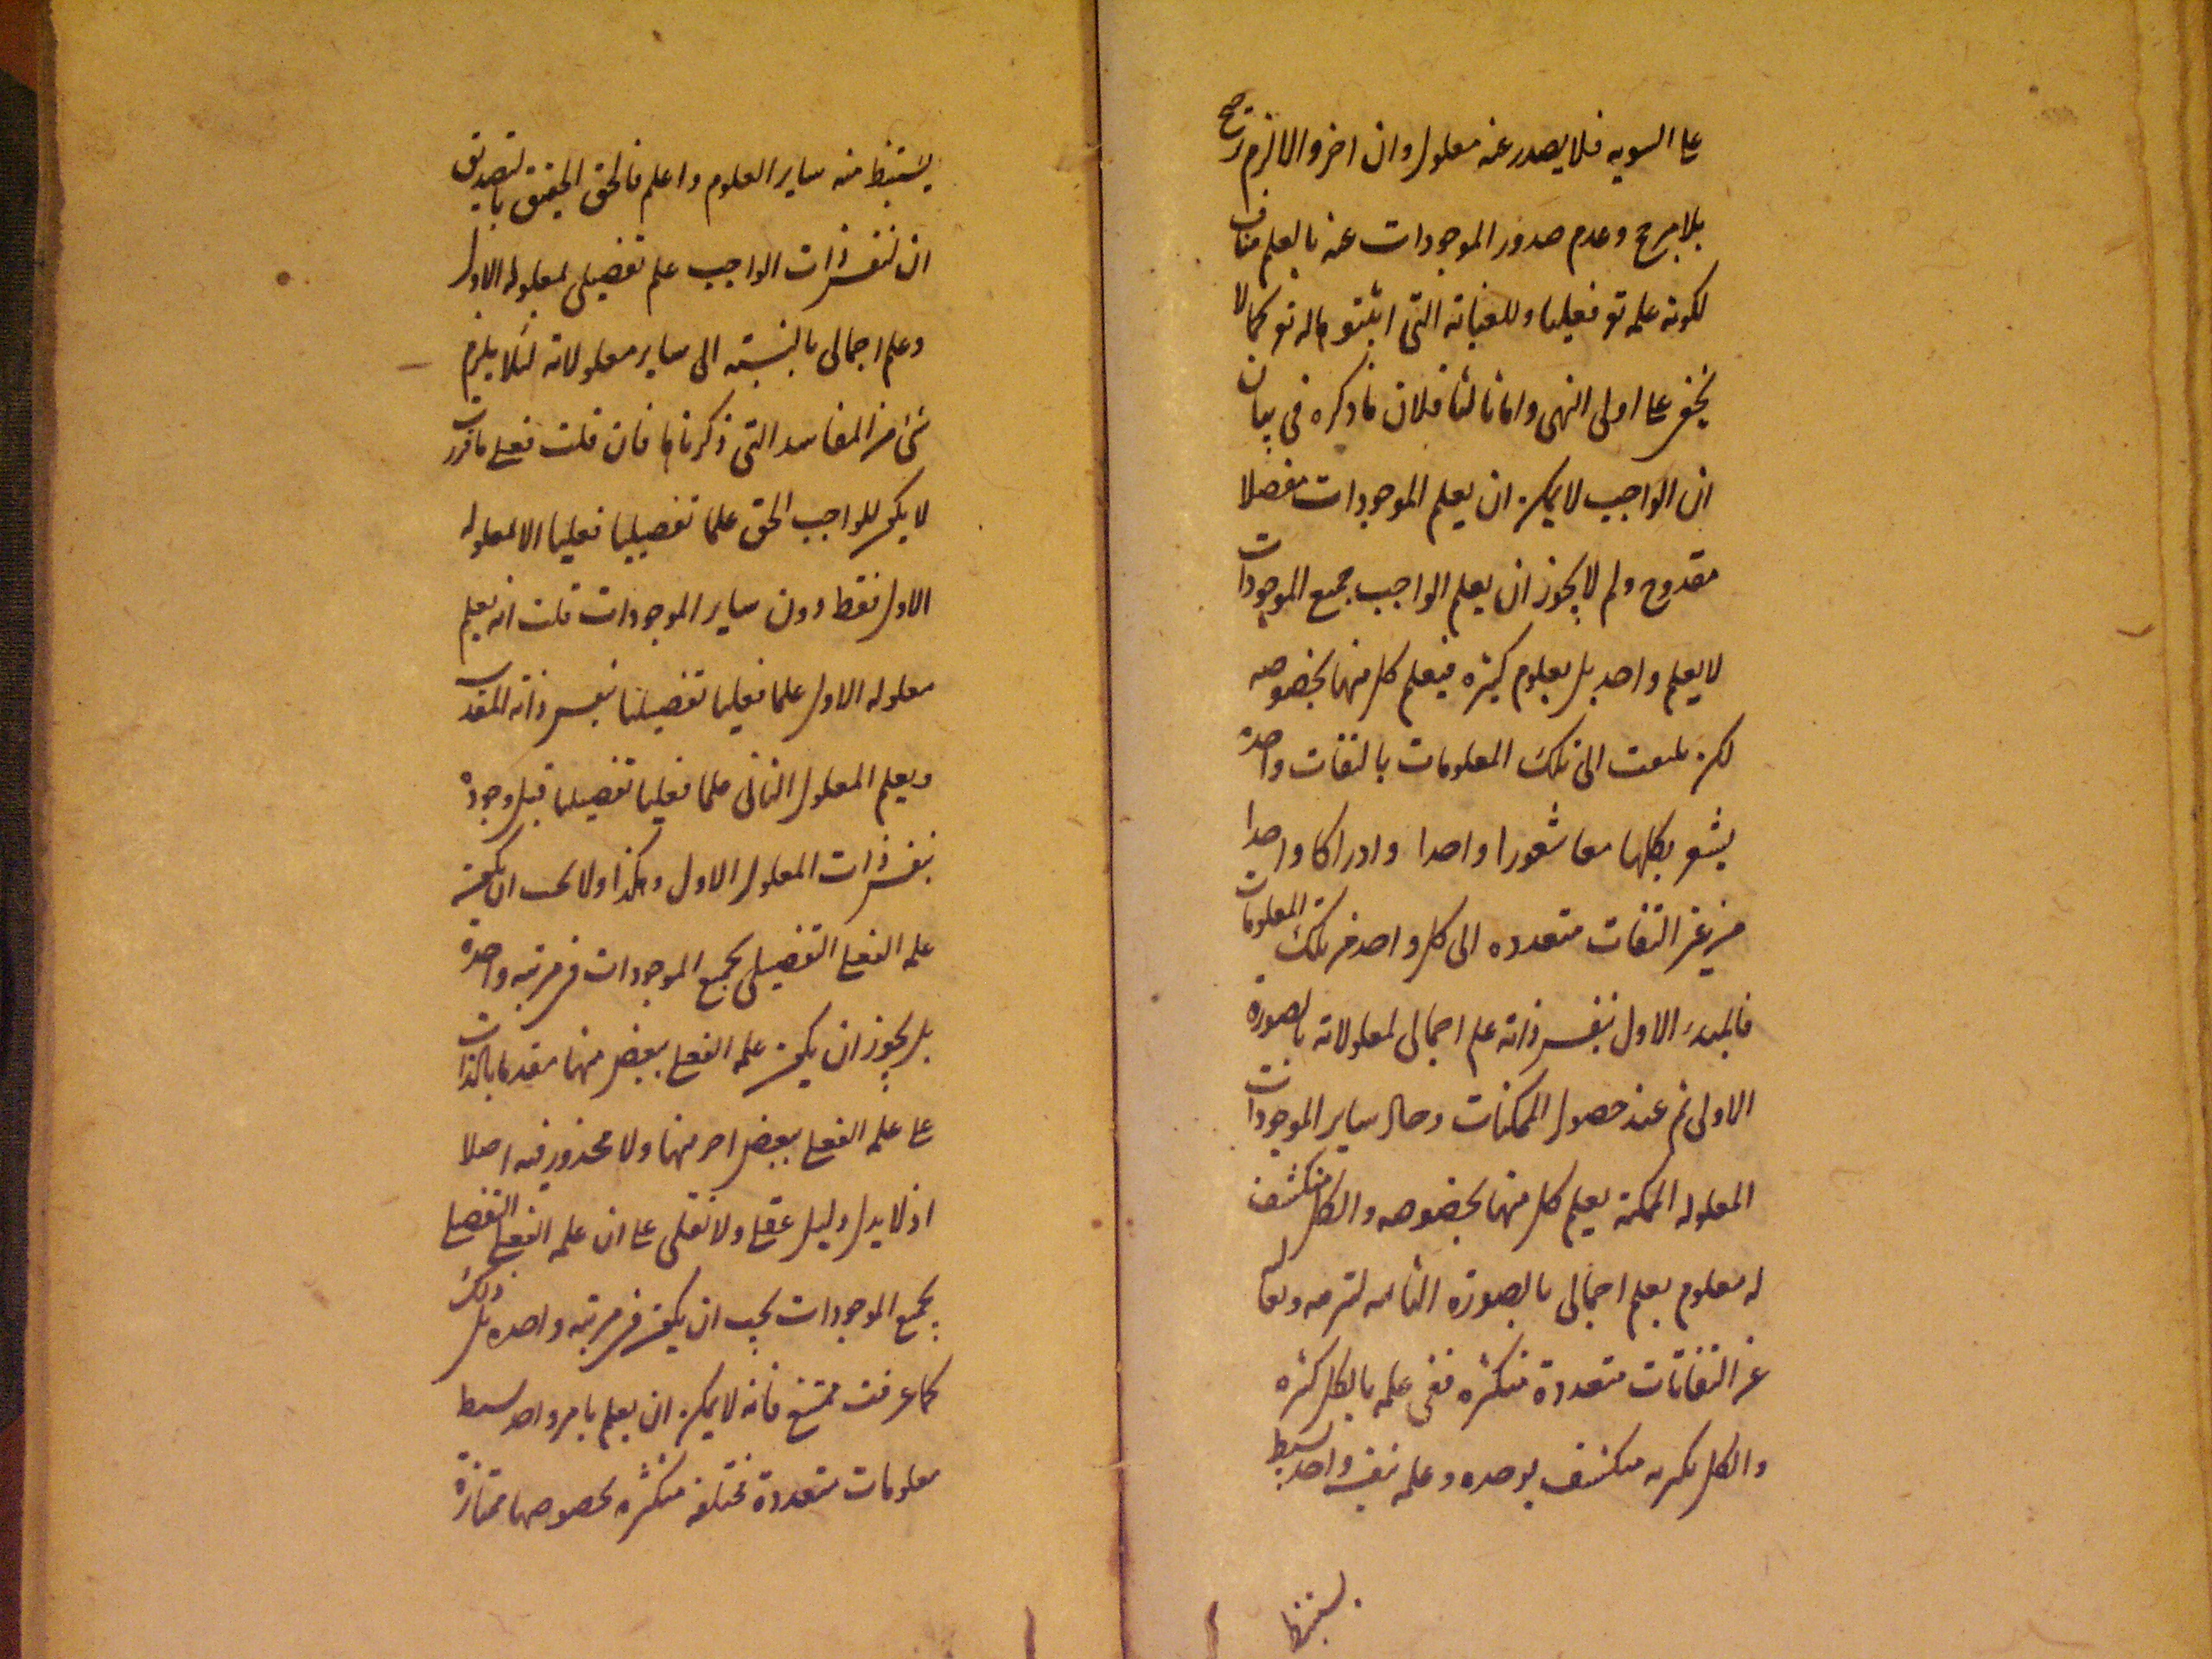 على السويه فلا يصدر عنه معلول وان اخر والا لزم ترجح
بلا مرجح وعدم صدور الموجودات عنه بالعلم مناف
لكونه علمه تع فعليا وللعناية التى اثبتوها له تع كما لا
يخفى على اولى النهى واما ثالثا فلان ما ذكره فى بيان
ان الواجب لا يمكن ان يعلم الموجودات مفصلا
مقدوح ولم لا يجوز ان يعلم الواجب جميع الموجودات
لا بعلم واحد بل بعلوم كثيره فيعلم كل منها بخصوصه
لكن يلتفت الى تلك المعلومات بالتفات واحده
يشعر بكلها معا شعورا واحدا وادراكا واحدا
من غير التفات متعدده الى كل واحد من تلك المعلومات
فالمبدء الاول بنفس ذاته علم اجمالى لمعلولاته بالصورة
الاولى ثم عند حصول الممكنات وحال ساير الموجودات
المعلوله الممكنة يعلم كل منها بخصوصه والكل منكشف
له معلوم بعلم اجمالى بالصورة الثانيه لتنزهه وتعاليه
عن التفاتات متعددة متكثره ففى علمه بالكل كثره
والكل بكثرته منكشف بوحده وعلمه بنفسه واحد بسيط
يستنبط
يستنبط منه ساير العلوم واعلم فالحق الحقيق بالتصديق
ان لنفس ذات الواجب علم تفصيلى لمعلوله الاول
وعلم اجمالى بالنسبته الى ساير معلولاته لئلا يلزم
شئ من المفاسد التى ذكرناها فان قلت فعلى ما قررت
لا يكون للواجب الحق علما تفصيليا فعليا الا لمعلوله
الاول فقط دون ساير الموجودات قلت انه يعلم
معلوله الاول علما فعليا تفصيليا بنفس ذاته المقدسه
ويعلم المعلول الثانى علما فعليا تفصيليا قبل وجوده
بنفس ذات المعلول الاول وهكذا ولا يجب ان يكون
علمه الفعلى التفصيلى بجميع الموجودات فى مرتبه واحدة
بل يجوز ان يكون علمه الفعلى ببعض منها مقدما بالذات
على علمه الفعلى ببعض اخر منها ولا محذور فيه اصلا
اذ لا يدل دليل عقلى ولا نقلى على ان علمه الفعلى التفصيلى
بجميع الموجودات يجب ان يكون فى مرتبه واحده بل ذلك
كما عرفت ممتنع فانه لا يمكن ان يعلم بامر واحد بسيط
معلومات متعددة مختلفه متكثره بخصوصها ممتازة